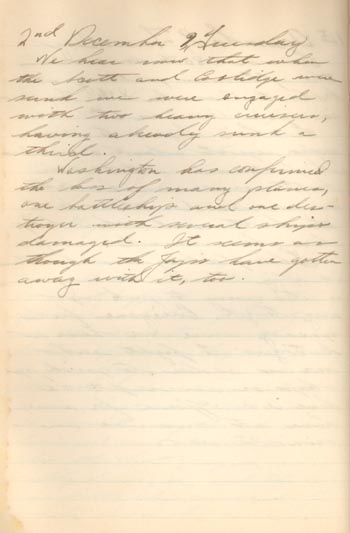 2nd December 9 Tuesday
We hear now that when
the Scott and Coolidge were
sunk we were engaged
with two heavy cruisers,
having already sunk a
third.
Washington has confirmed
the loss of many planes,
one battleship and one des-
troyer with several ships
damaged. It seems as
though the Japs have gotten
away with it, too.